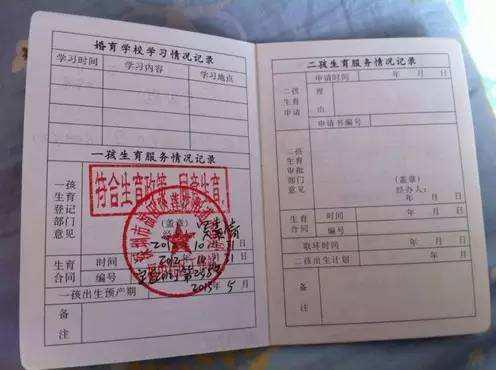 婚育学校学习情况记录
学习时间 学习内容 学习地点
一孩生育服务情况记录
一孩生育登记部门意见
符合生育政策，同意生育。
(盖章)
生育合同 时间
编号
一孩出生预产期 2015年5月
备注
二孩生育服务情况记录
二孩生育申请
申请时间 年 月 日
理由
申请书编号
二孩生育审批部门意见
(盖章)
经办人：
年 月 日
生育合同 时间 年 月 日
编号
取环时间 年 月 日
二孩出生计划
备注